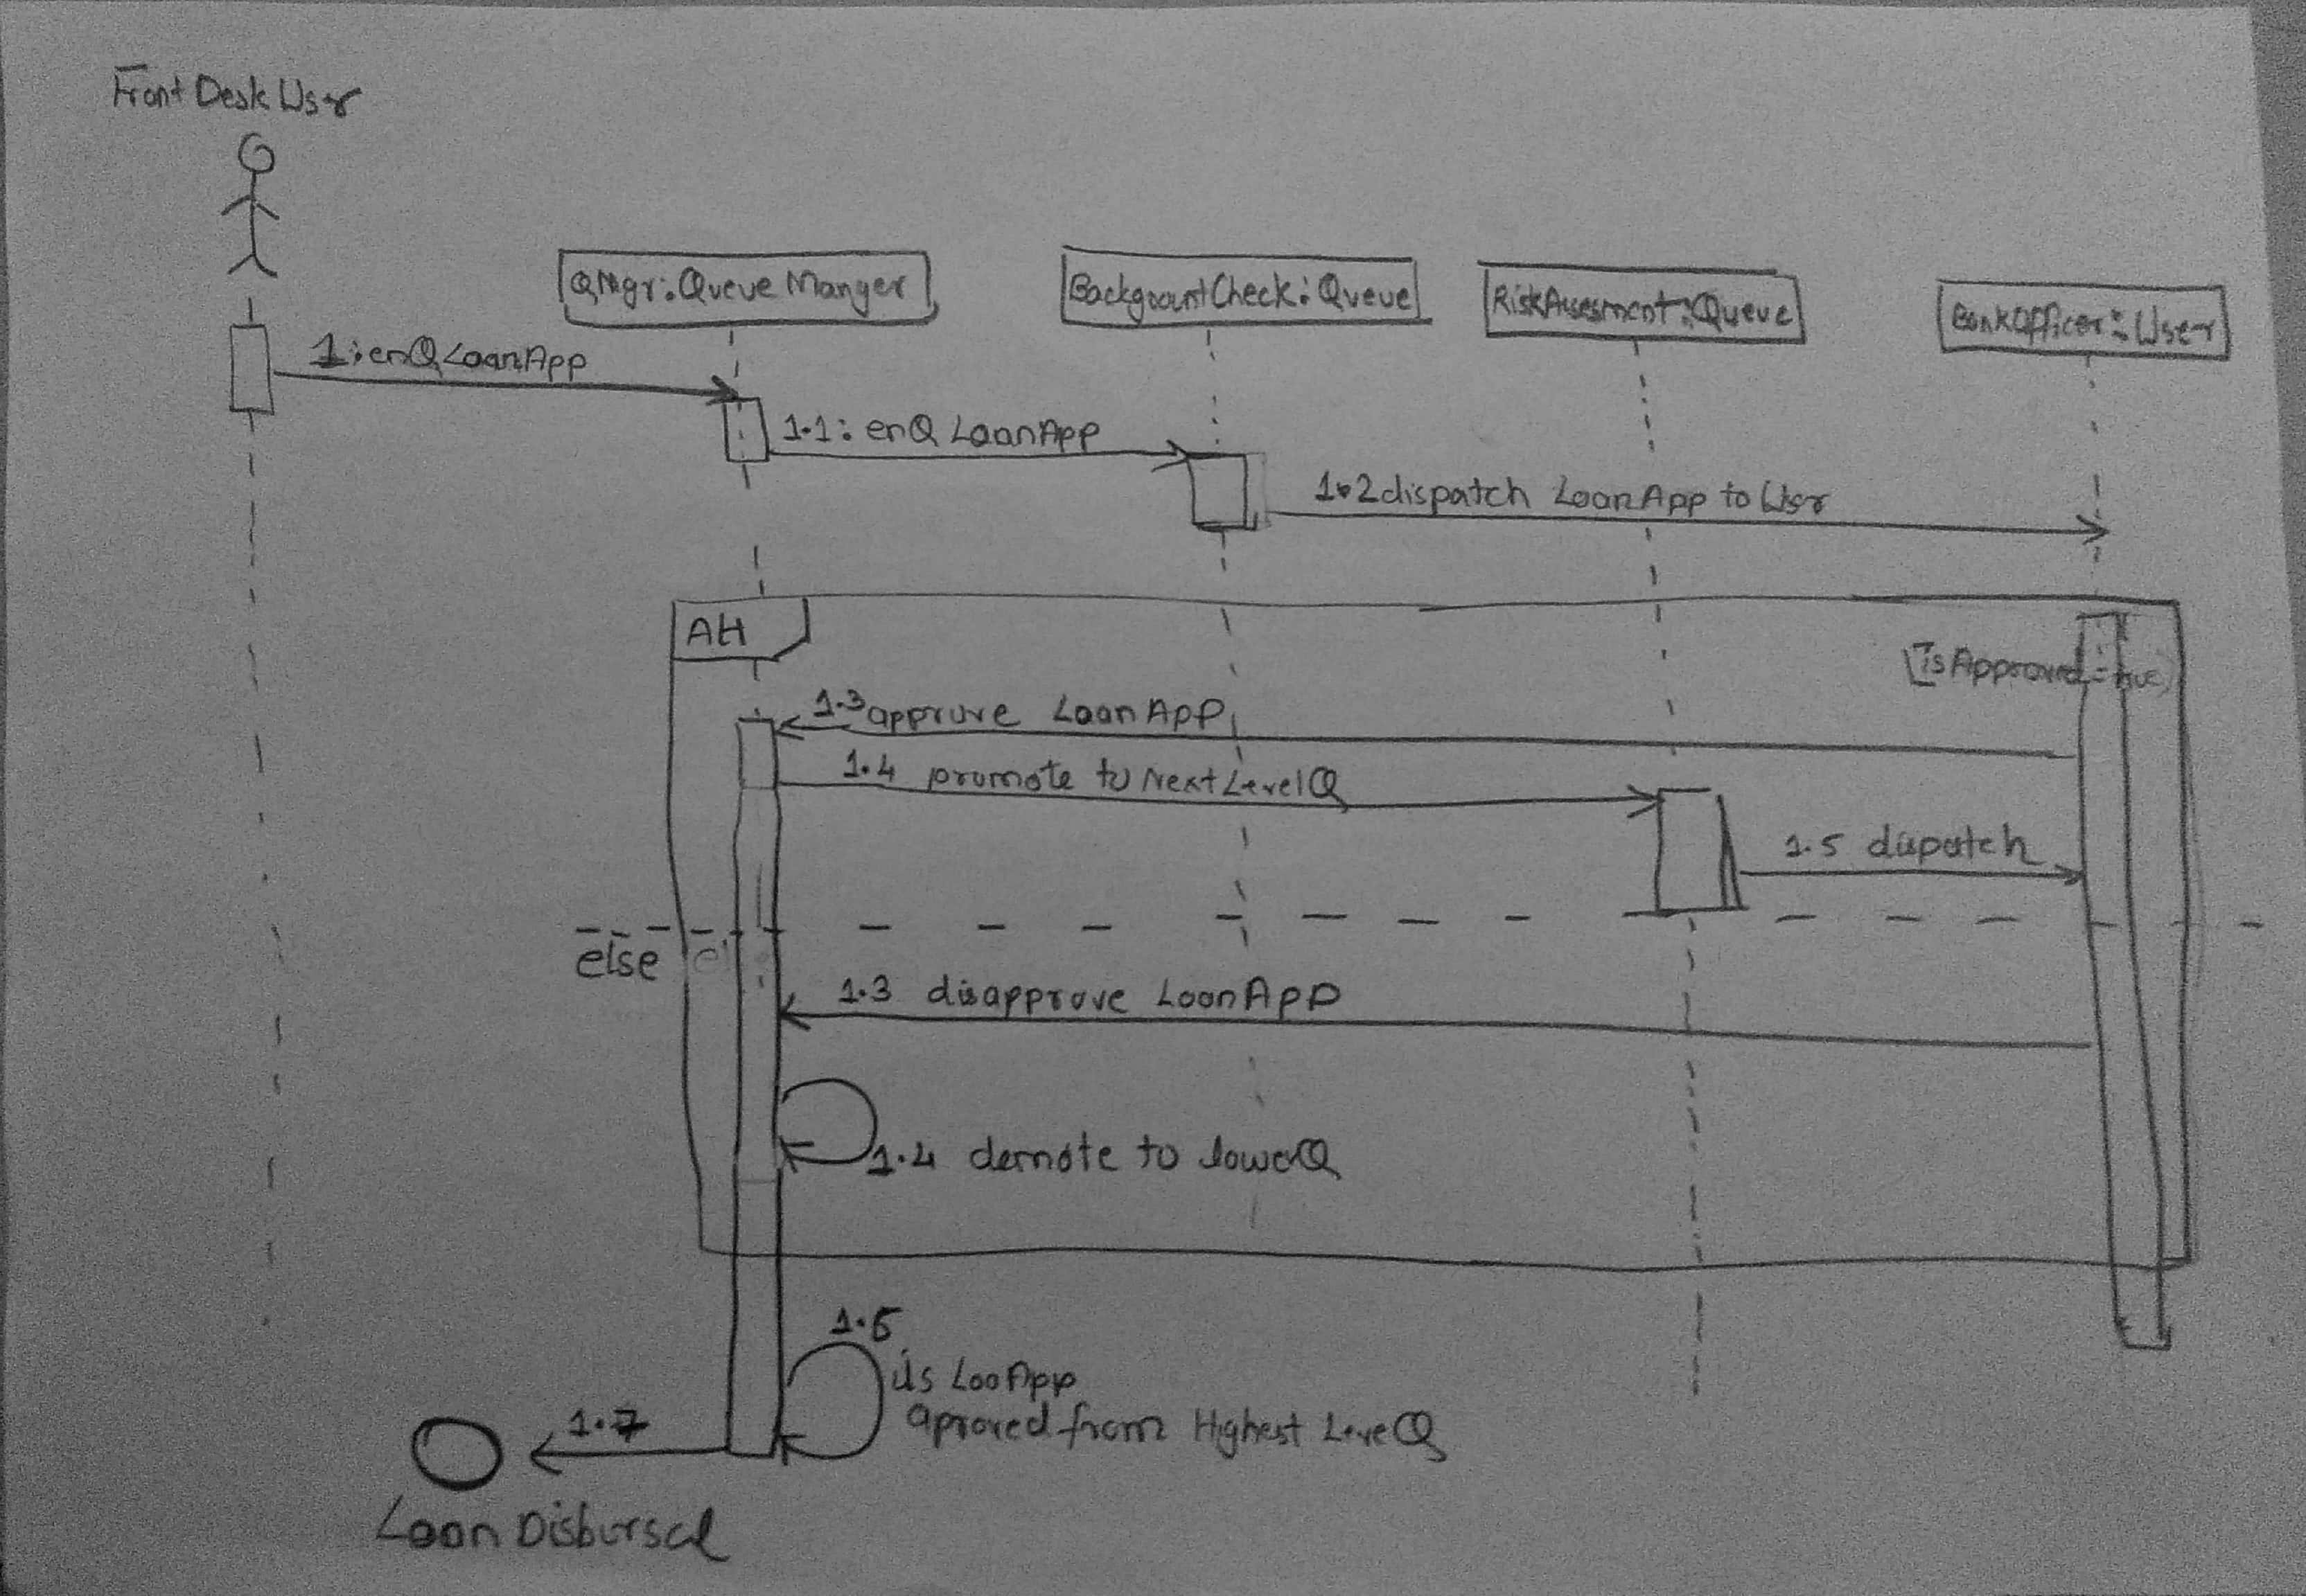 Front Desk User
QMgr:Queue Manger
BackgrountCheck:Queue
RiskAssesment:Queue
BankOfficer:User
1:enQLoanApp
1.1: enQ LoanApp
1.2dispatch LoanApp to User
Alt
[isApproved=true]
1.3 approve LoanApp
1.4 promote to NextLevelQ
1.5 dispatch
else
1.3 disapprove LoanApp
1.4 demote to lowerQ
1.5
is LooApp
aproved from Highest LeveQ
1.7
Loan Disbursal